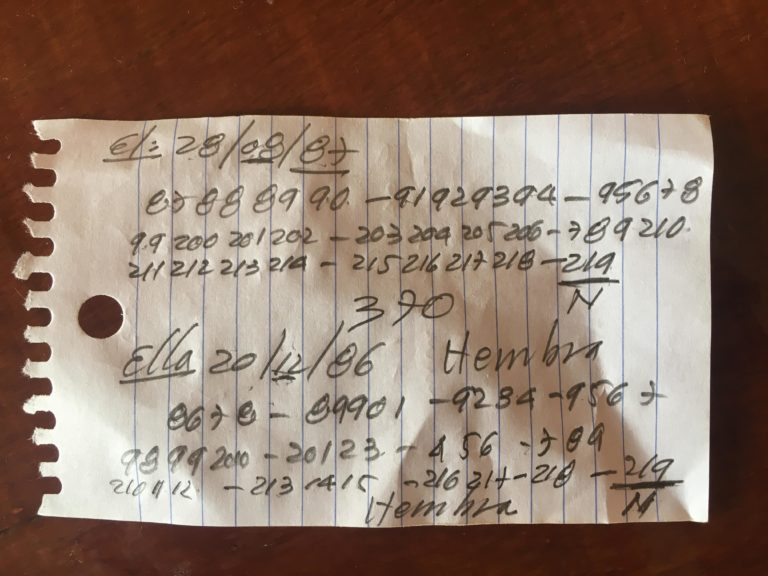 El: 28/08/87
87888990 - 91929394 - 95678
99200201202 - 203204205206 - 789210.
211212213214 - 215216217218 - 219
370 N
Ella 20/12/86 Hembra
8678 - 89901 - 9234 - 9567
9899200 - 20123 - 456 - 789
2101112 - 2131415 - 216217 - 218 - 219
Hembra N